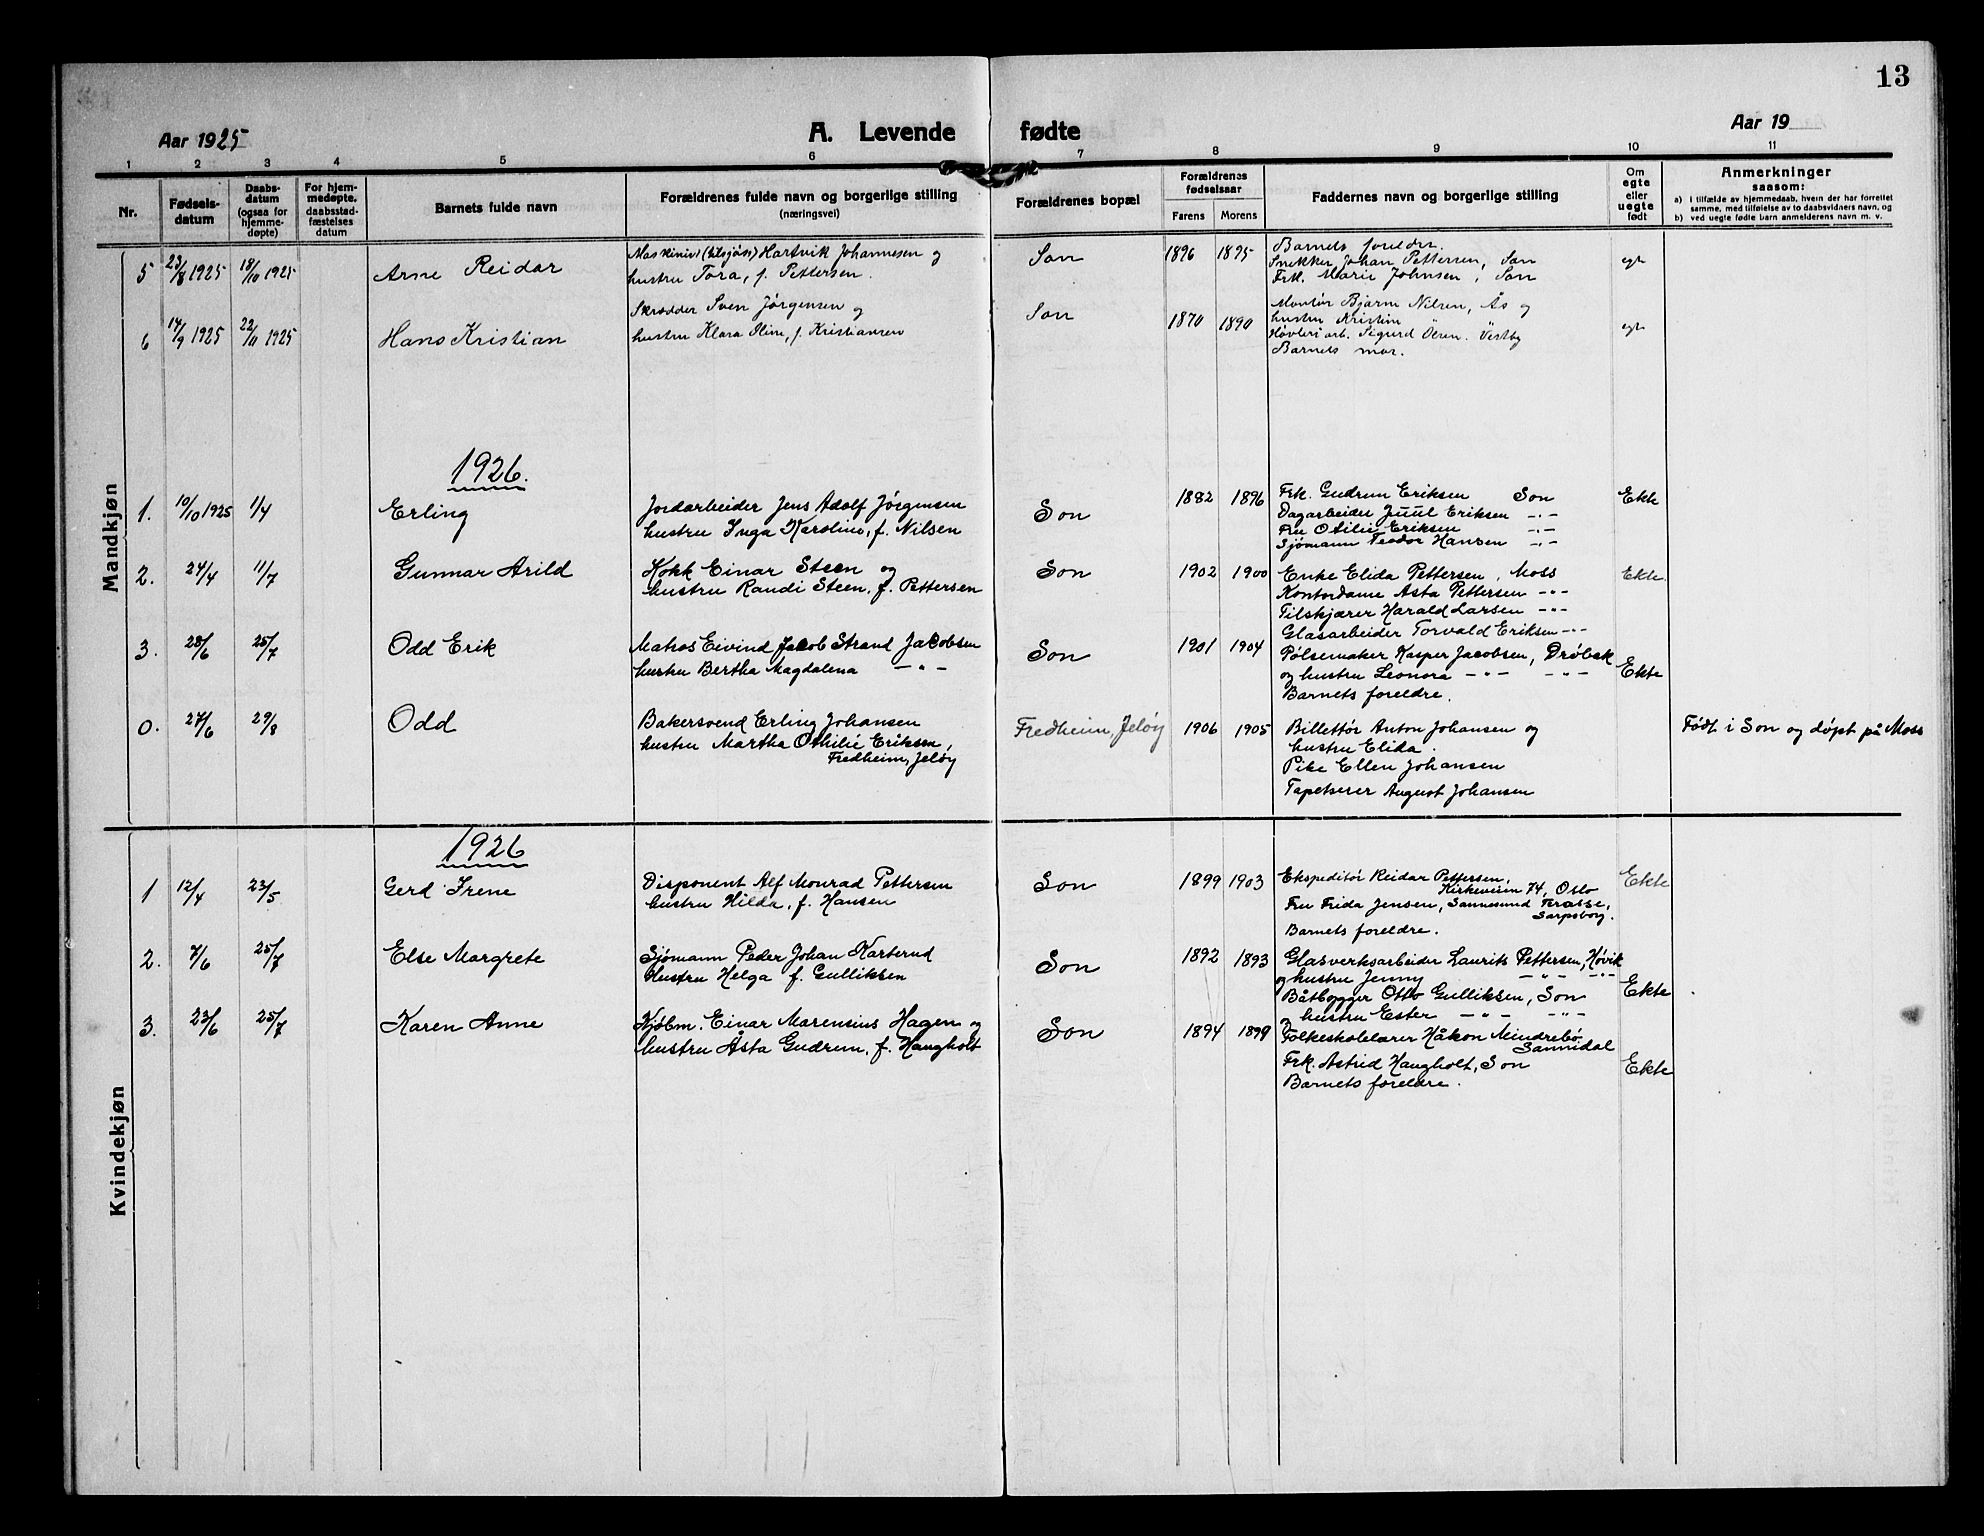 13
Aar 1925
A. Levende fødte
Aar 19
1 2 3 4 5 6 7 8 9 10 11
Nr.
Fødsels-
datum
Daabs-
datum
(ogsaa for
hjemme-
døpte)
For hjem-
medøpte.
daabsstad-
fæstelses
datum
Barnets fulde navn
Forældrenes fulde navn og borgerlige stilling
(næringsvei)
Forældrenes bopæl
Forældrenes
fødselsaar
Farens Morens
Faddernes navn og borgerlige stilling
Om
egte
eller
uegte
født
Anmerkninger
saasom:
a) i tilfælde av hjemmedaab, hvem der har forrettet
samme, med tilføielse av to daabsvidners navn, og
b) ved uegte fødte barn anmelderens navn m. v.
Mandkjøn
5 23/8 1925 18/10 1925 Arne Reidar
Maskinist (tilsjøss) Hartvik Johannesen og
hustru Tora, f. Pettersen.
Son 1896 1895
Barnets foreldre.
Snekker Johan Pettersen, Son
Frk. Marie Johnsen, Son
egt
6 14/9 1925 22/11 1925 Hans Kristian
Skrædder Sven Jørgensen og
hustru Klara Oline, f. Kristiansen
Son 1870 1890
Montør Bjarne Nilsen, Ås og
hustru Kristine
Høvleriarb. Sigurd Olsen. Vestby
Barnets mor.
egt
1926.
1. 10/10 1925 11/4 Erling
Jordarbeider Jens Adolf Jørgensen
hustru Inga Karoline, f. Nilsen
Son 1882 1896
Frk. Gudrun Eriksen Son
Dagarbeider Juul Eriksen -"-
Fru Otilie Eriksen -"-
Sjømann Teodor Hansen -"-
Ekte
2. 24/4 11/7 Gunnar Arild
Kokk Einar Steen og
hustru Randi Steen, f. Pettersen
Son 1902 1900
Enke Elida Pettersen, Moss
Kontordame Asta Pettersen -"-
Tilskjærer Harald Larsen -"-
Glasarbeider Torvald Eriksen -"-
Ekte.
3. 28/6 25/7 Odd Erik
Matros Eivind Jacob Strand Jacobsen
hustru Bertha Magdalena -"-
Son 1901 1904
Pølsemaker Kasper Jacobsen, Drøbak
og hustru Leonora -"- -"-
Barnets foreldre.
Ekte
0. 27/6 29/8 Odd
Bakersvend Erling Johansen
hustru Martha Othilie Eriksen,
Fredheim, Jeløy
Fredheim, Jeløy 1906 1905
Billettør Anton Johansen og
hustru Elida.
Pike Ellen Johansen
Tapetserer August Johansen
Født i Son og døpt på Moss
Kvindekjøn
1926
1 12/4 23/5 Gerd Irene
Disponent Alf Monrad Pettersen
hustru Hilda, f. Hansen
Son 1899 1903
Ekspeditør Reidar Pettersen,
Kirkeveien 74, Oslo
Fru Frida Jensen, Sannesund Terasse,
Sarpsborg.
Barnets foreldre.
Ekte
2. 7/6 25/7 Else Margrete
Sjømann Peder Johan Karterud
Hustru Helga f. Gulliksen
Son 1892 1893
Glasverksarbeider Laurits Pettersen, Høvik
og hustru Jenny -"- -"-
Båtbygger Otto Gulliksen, Son
og hustru Ester -"- -"-
Ekte
3. 23/6 25/7 Karen Anne
Kjøbm. Einar Marensius Hagen og
hustru Asta Gudrun, f. Haugholt
Son 1894 1899
Folkeskolelærer Håkon Meindrebø
Sannidal
Frk. Astrid Haugholt, Son
Barnets foreldre.
Ekte